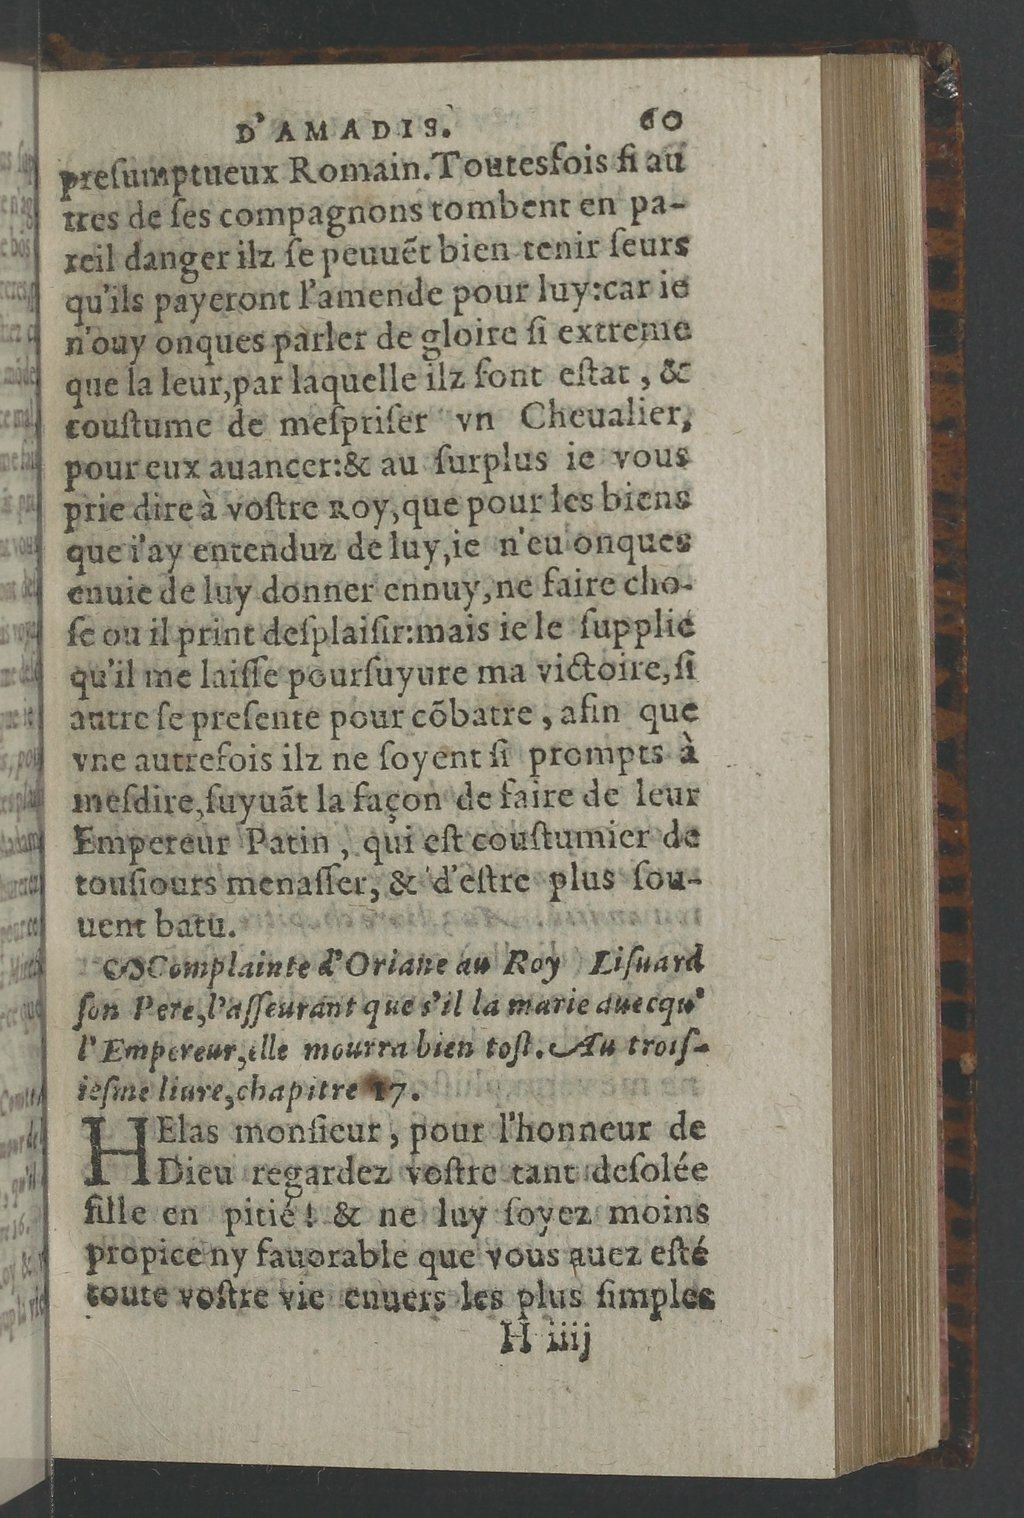 D'AMADIS. 60
preſumptueux Romain. Toutesfois ſi au
tres de ſes compagnons tombent en pa-
reil danger ilz ſe peuuẽt bien tenir ſeurs
qu'ils payeront l'amende pour luy:car ie
n'ouy onques parler de gloire ſi extreme
que la leur,par laquelle ilz font eſtat , &
couſtume de meſpriſer vn Cheualier,
pour eux auancer:& au ſurplus ie vous
prie dire à voſtre Roy,que pour les biens
que i'ay entenduz de luy,ie n'eu onques
enuie de luy donner ennuy,ne faire cho-
ſe ou il print deſplaiſir:mais ie le ſupplie
qu'il me laiſſe pourſuyure ma victoire,ſi
autre ſe preſente pour cõbatre , afin que
vne autrefois ilz ne ſoyent ſi prompts à
meſdire,ſuyuãt la façon de faire de leur
Empereur Patin , qui eſt couſtumier de
touſiours menaſſer, & d'eſtre plus ſou-
uent batu.
Complainte d'Oriane au Roy Liſuard
ſon Pere,l'aſſeurant que s'il la marie auecqu'
l'Empereur,elle mourra bien toſt. Au troiſ-
ieſme liure,chapitre 17.
HElas monſieur , pour l'honneur de
Dieu regardez voſtre tant deſolée
fille en pitié! & ne luy ſoyez moins
propice ny fauorable que vous auez eſté
toute voſtre vie enuers les plus ſimples
H iiij